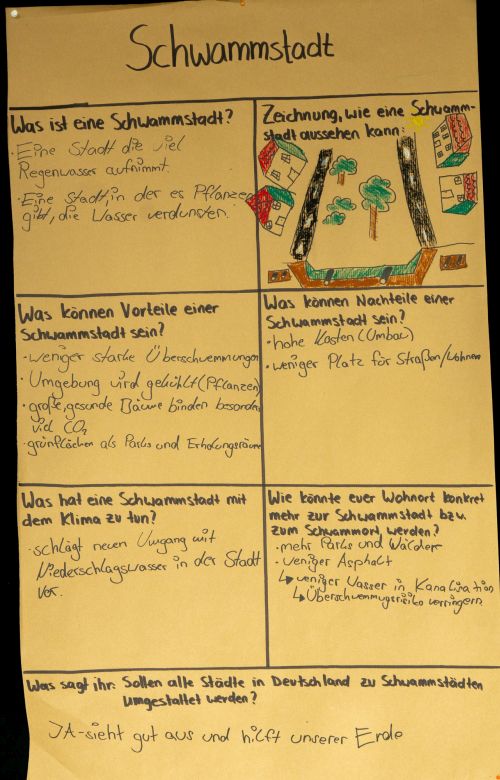 Schwammstadt
Was ist eine Schwammstadt?
· Eine Stadt die viel
Regenwasser aufnimmt.
· Eine Stadt, in der es Pflanzen
gibt, die Wasser verdunsten.
Zeichnung, wie eine Schwamm-
stadt aussehen kann:
Was können Vorteile einer
Schwammstadt sein?
· weniger starke Überschwemmungen
· Umgebung wird gekühlt (Pflanzen)
· große, gesunde Bäume binden besonders
viel CO₂
· grünflächen als Parks und Erholungsräume
Was können Nachteile einer
Schwammstadt sein?
· hohe Kosten (Umbau)
· weniger Platz für Straßen/Wohnen
Was hat eine Schwammstadt mit
dem Klima zu tun?
· schlägt neuen Umgang mit
Niederschlagswasser in der Stadt
vor.
Wie könnte euer Wohnort konkret
mehr zur Schwammstadt bzw.
zum Schwammort werden?
· mehr Parks und Wälder
· weniger Asphalt
↳ weniger Wasser in Kanalisation
↳ Überschwemmugsrisiko verringern
Was sagt ihr: Sollen alle Städte in Deutschland zu Schwammstädten
umgestaltet werden?
JA - sieht gut aus und hilft unserer Erde